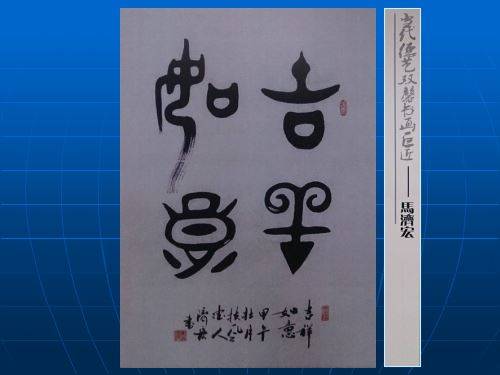 吉羊
如意
吉祥
如意
甲午
桂月
人
濟宏
書
当代德艺双馨书画巨匠——馬濟宏